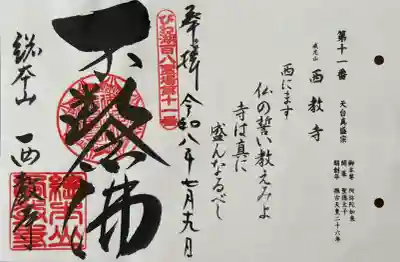 第十一番 天台真盛宗
戒光山 西教寺
西にます
仏の誓い教えみよ
寺は真に
盛んなるべし
御本尊 阿弥陀如来
開基 聖徳太子
開創年 推古天皇二十六年
奉拝 令和八年七月十九日
びわ湖百八霊場第十一番
不断念佛
総本山 西教寺